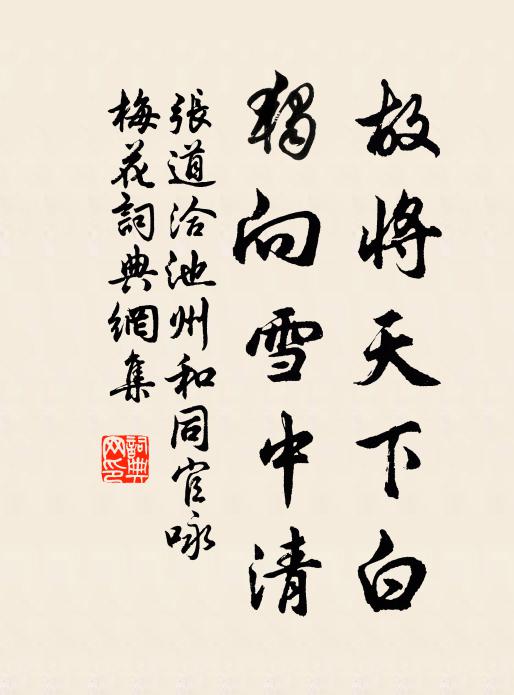 故將天下白
獨向雪中清
張道洽池州和同官咏
梅花詞典網集
詞典網印